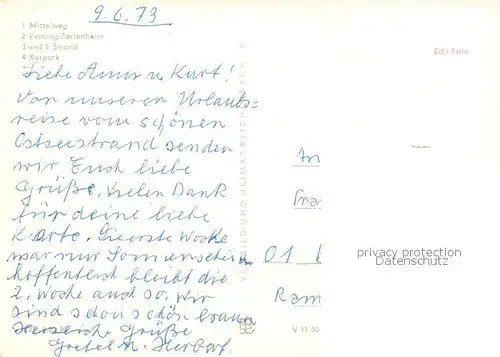 9.6.73
1 Mittelweg
2 Zentrag-Ferienheim
3 und 5 Strand
4 Kurpark
Echt Foto
Liebe Anm u. Kurt!
Von unseren Urlaubs=
reise vom schönen
Ostseestrand senden
wir Euch liebe
Grüße. Vielen Dank
für deine liebe
Karte. Die erste Woche
war nur Sonnenschein
hoffentlich bleibt die
2. Woche auch so. Wir
sind schon schön braun
Herzliche Grüße
Gretel u. Herbert.
VEB BILD UND HEIMAT REICHENBACH i. V.
An
Fra
01
Ram
privacy protection
Datenschutz
V 11 50